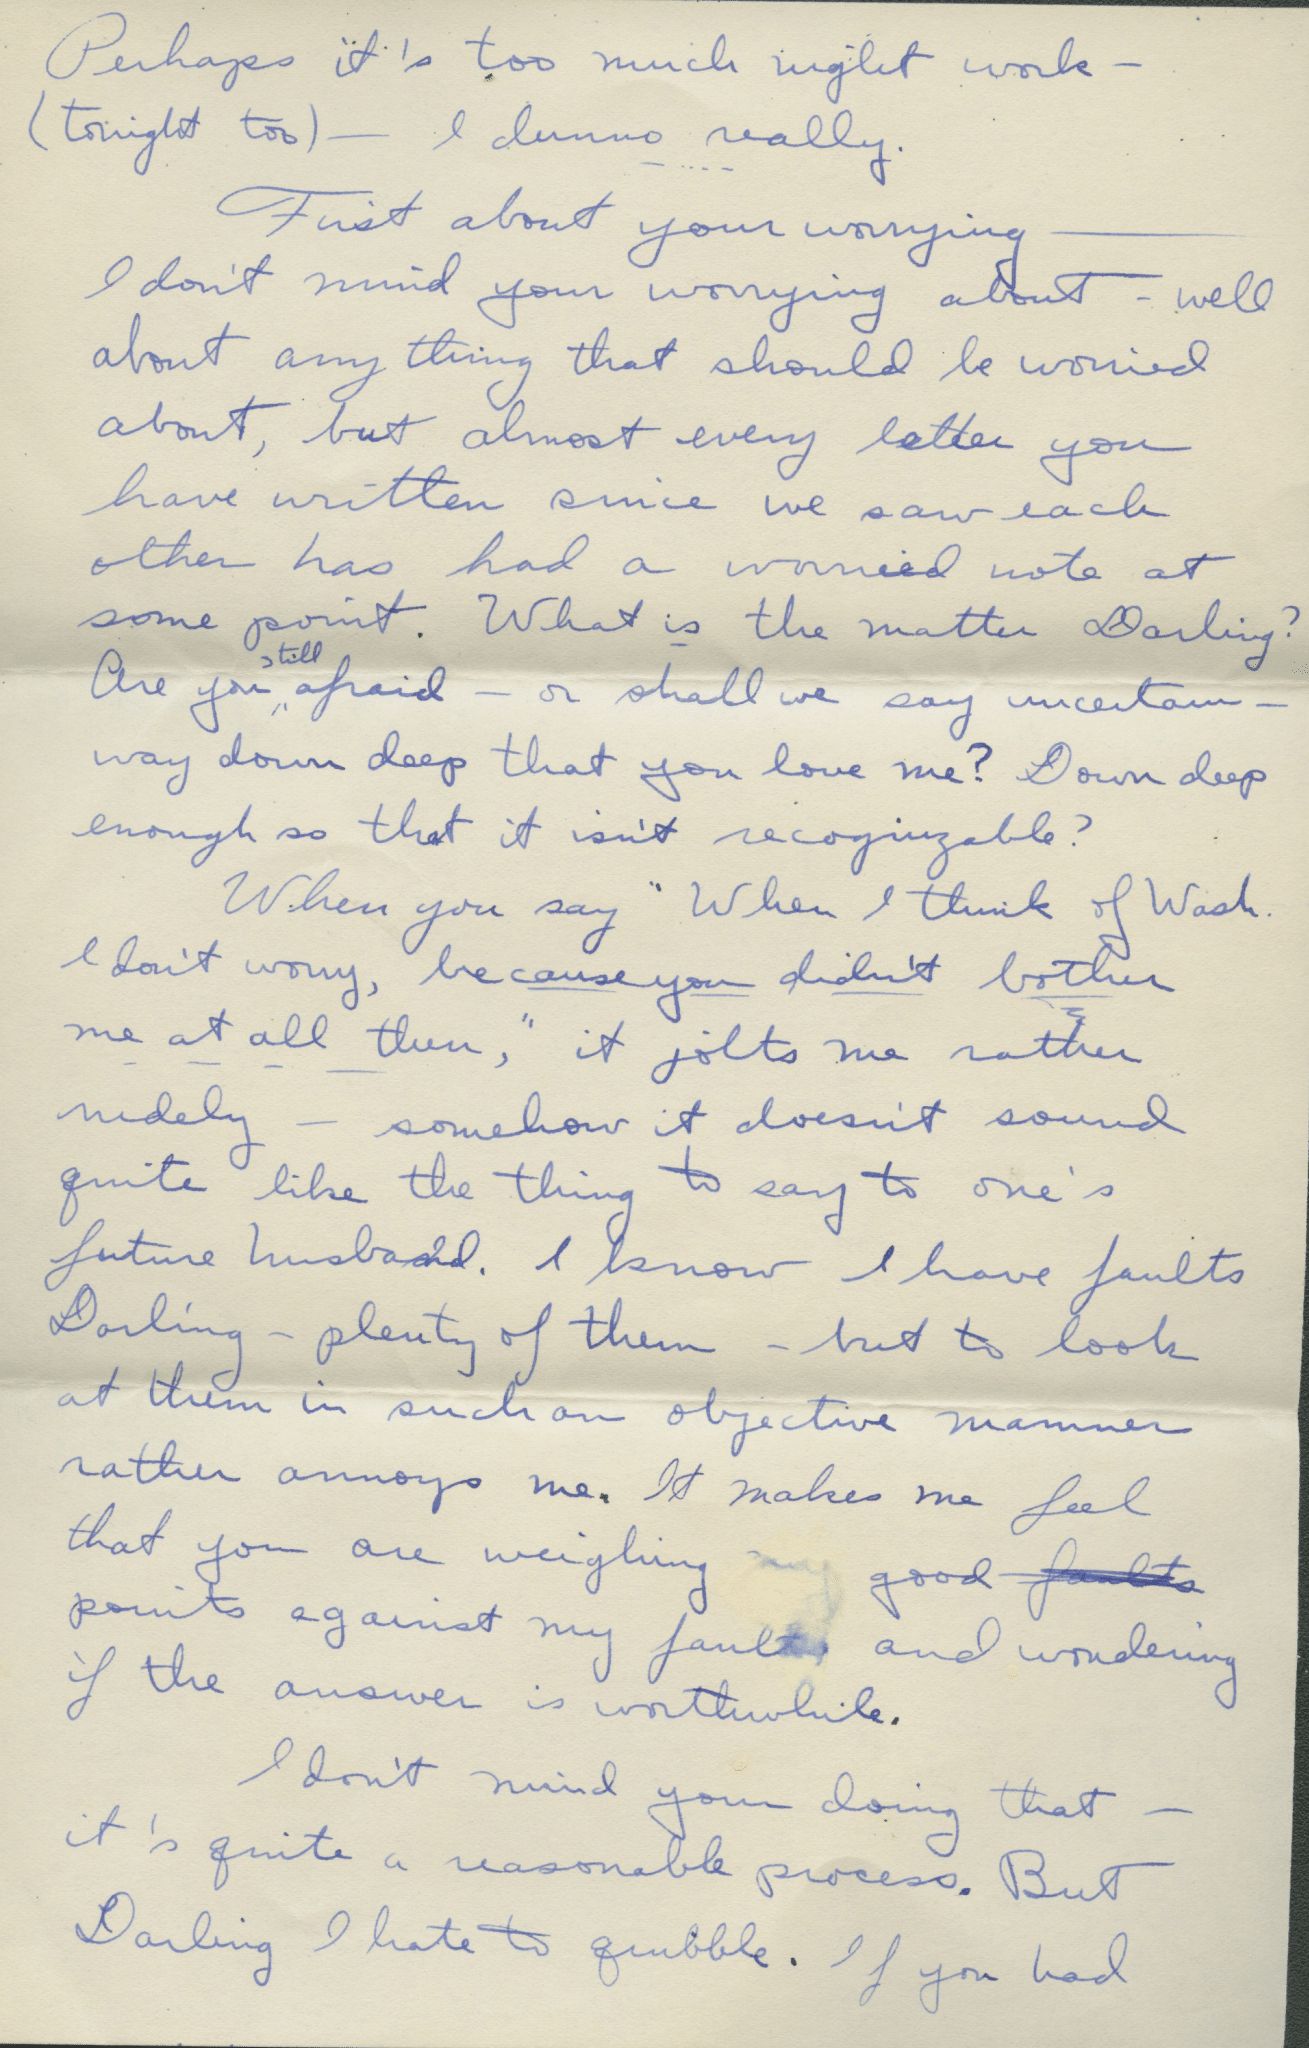 Perhaps it's too much night work –
(tonight too) — I dunno really.
First about your worrying ——
I don't mind your worrying about - well
about any thing that should be worried
about, but almost every letter you
have written since we saw each
other has had a worried note at
some point. What is the matter Darling?
Are you still afraid – or shall we say uncertain –
way down deep that you love me? Down deep
enough so that it isn't recognizable?
When you say "When I think of Wash.
I don't worry, because you didn't bother
me at all then," it jolts me rather
rudely – somehow it doesn't sound
quite like the thing to say to one's
future husband. I know I have faults
Darling – plenty of them – but to look
at them in such an objective manner
rather annoys me. It makes me feel
that you are weighing my good faults
points against my faults, and wondering
if the answer is worthwhile.
I don't mind your doing that –
it's quite a reasonable process. But
Darling I hate to quibble. If you had